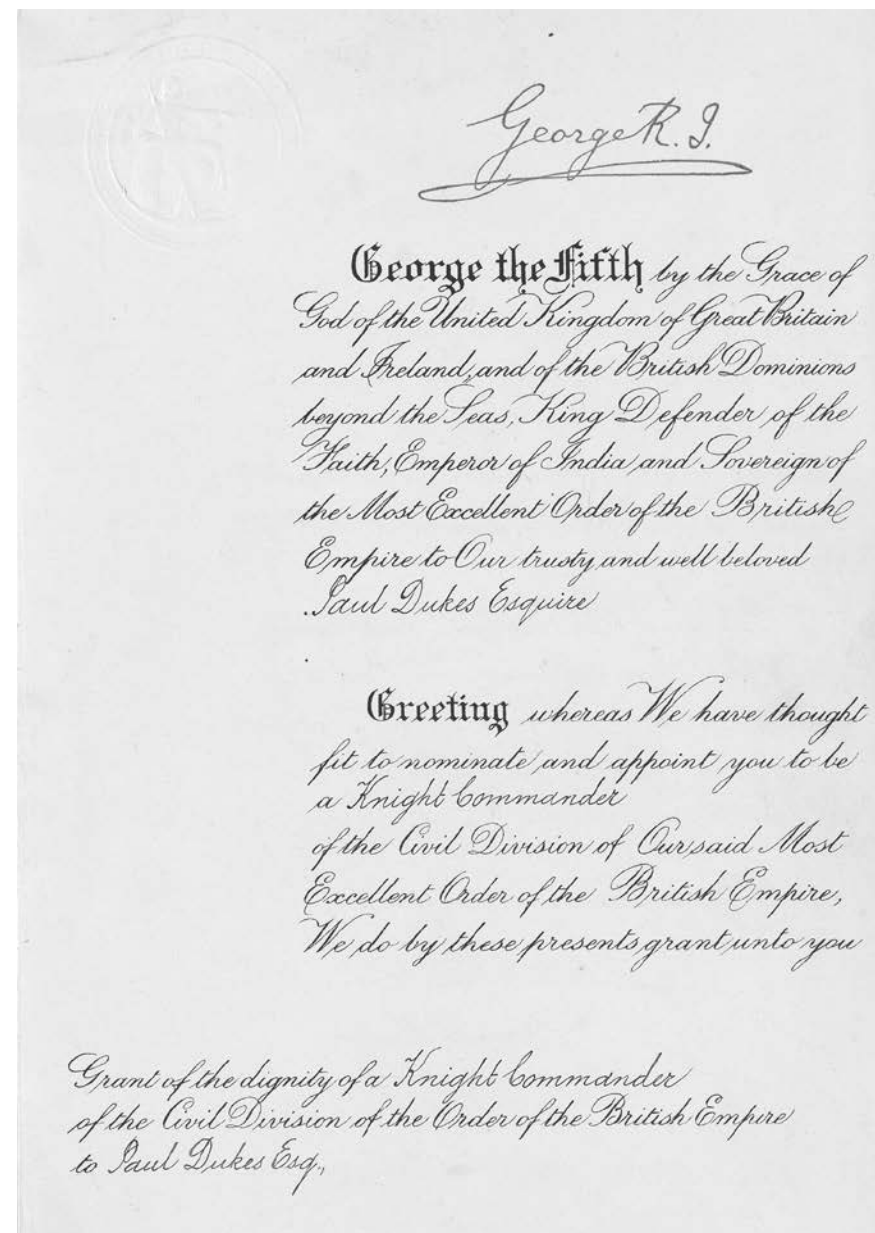 George R.I.
George the Fifth by the Grace of
God of the United Kingdom of Great Britain
and Ireland, and of the British Dominions
beyond the Seas, King Defender of the
Faith, Emperor of India and Sovereign of
the Most Excellent Order of the British
Empire to Our trusty and well beloved
Paul Dukes Esquire
Greeting whereas We have thought
fit to nominate and appoint you to be
a Knight Commander
of the Civil Division of Our said Most
Excellent Order of the British Empire,
We do by these presents grant unto you
Grant of the dignity of a Knight Commander
of the Civil Division of the Order of the British Empire
to Paul Dukes Esq.,